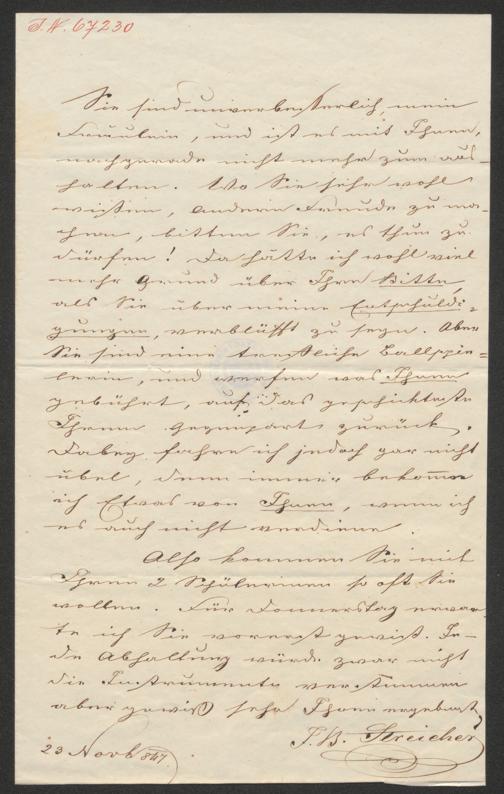 I.N. 67230
Sie sind unverbesserlich, mein
Fräulein, und ist es mit Ihnen,
nachgerade nicht mehr zum aus-
halten. Wo Sie sehr wohl
wissen, andern Freude zu ma-
chen, bitten Sie, es thun zu
dürfen! Da hätte ich wohl viel
mehr Grund über Ihre Bitte,
als Sie über meine Entschuldi-
gungen, verblüfft zu seyn. Aber
Sie sind eine treffliche Ballspie-
lerin, und werfen was Ihnen
gebührt, auf das geschickteste
Ihrem Gegenpart zurück.
Dabey fahre ich jedoch gar nicht
übel, denn immer bekomme
ich Etwas von Ihnen, wenn ich
es auch nicht verdiene.
Also kommen Sie mit
Ihren 2 Schülerinen so oft Sie
wollen. Für Donnerstag erwar-
te ich Sie vorerst gewiß. Je-
de Abhaltung würde zwar nicht
die Instrumente verstimmen
aber gewiß sehr Ihren ergebenst
J. B. Streicher
23 Novb 847.